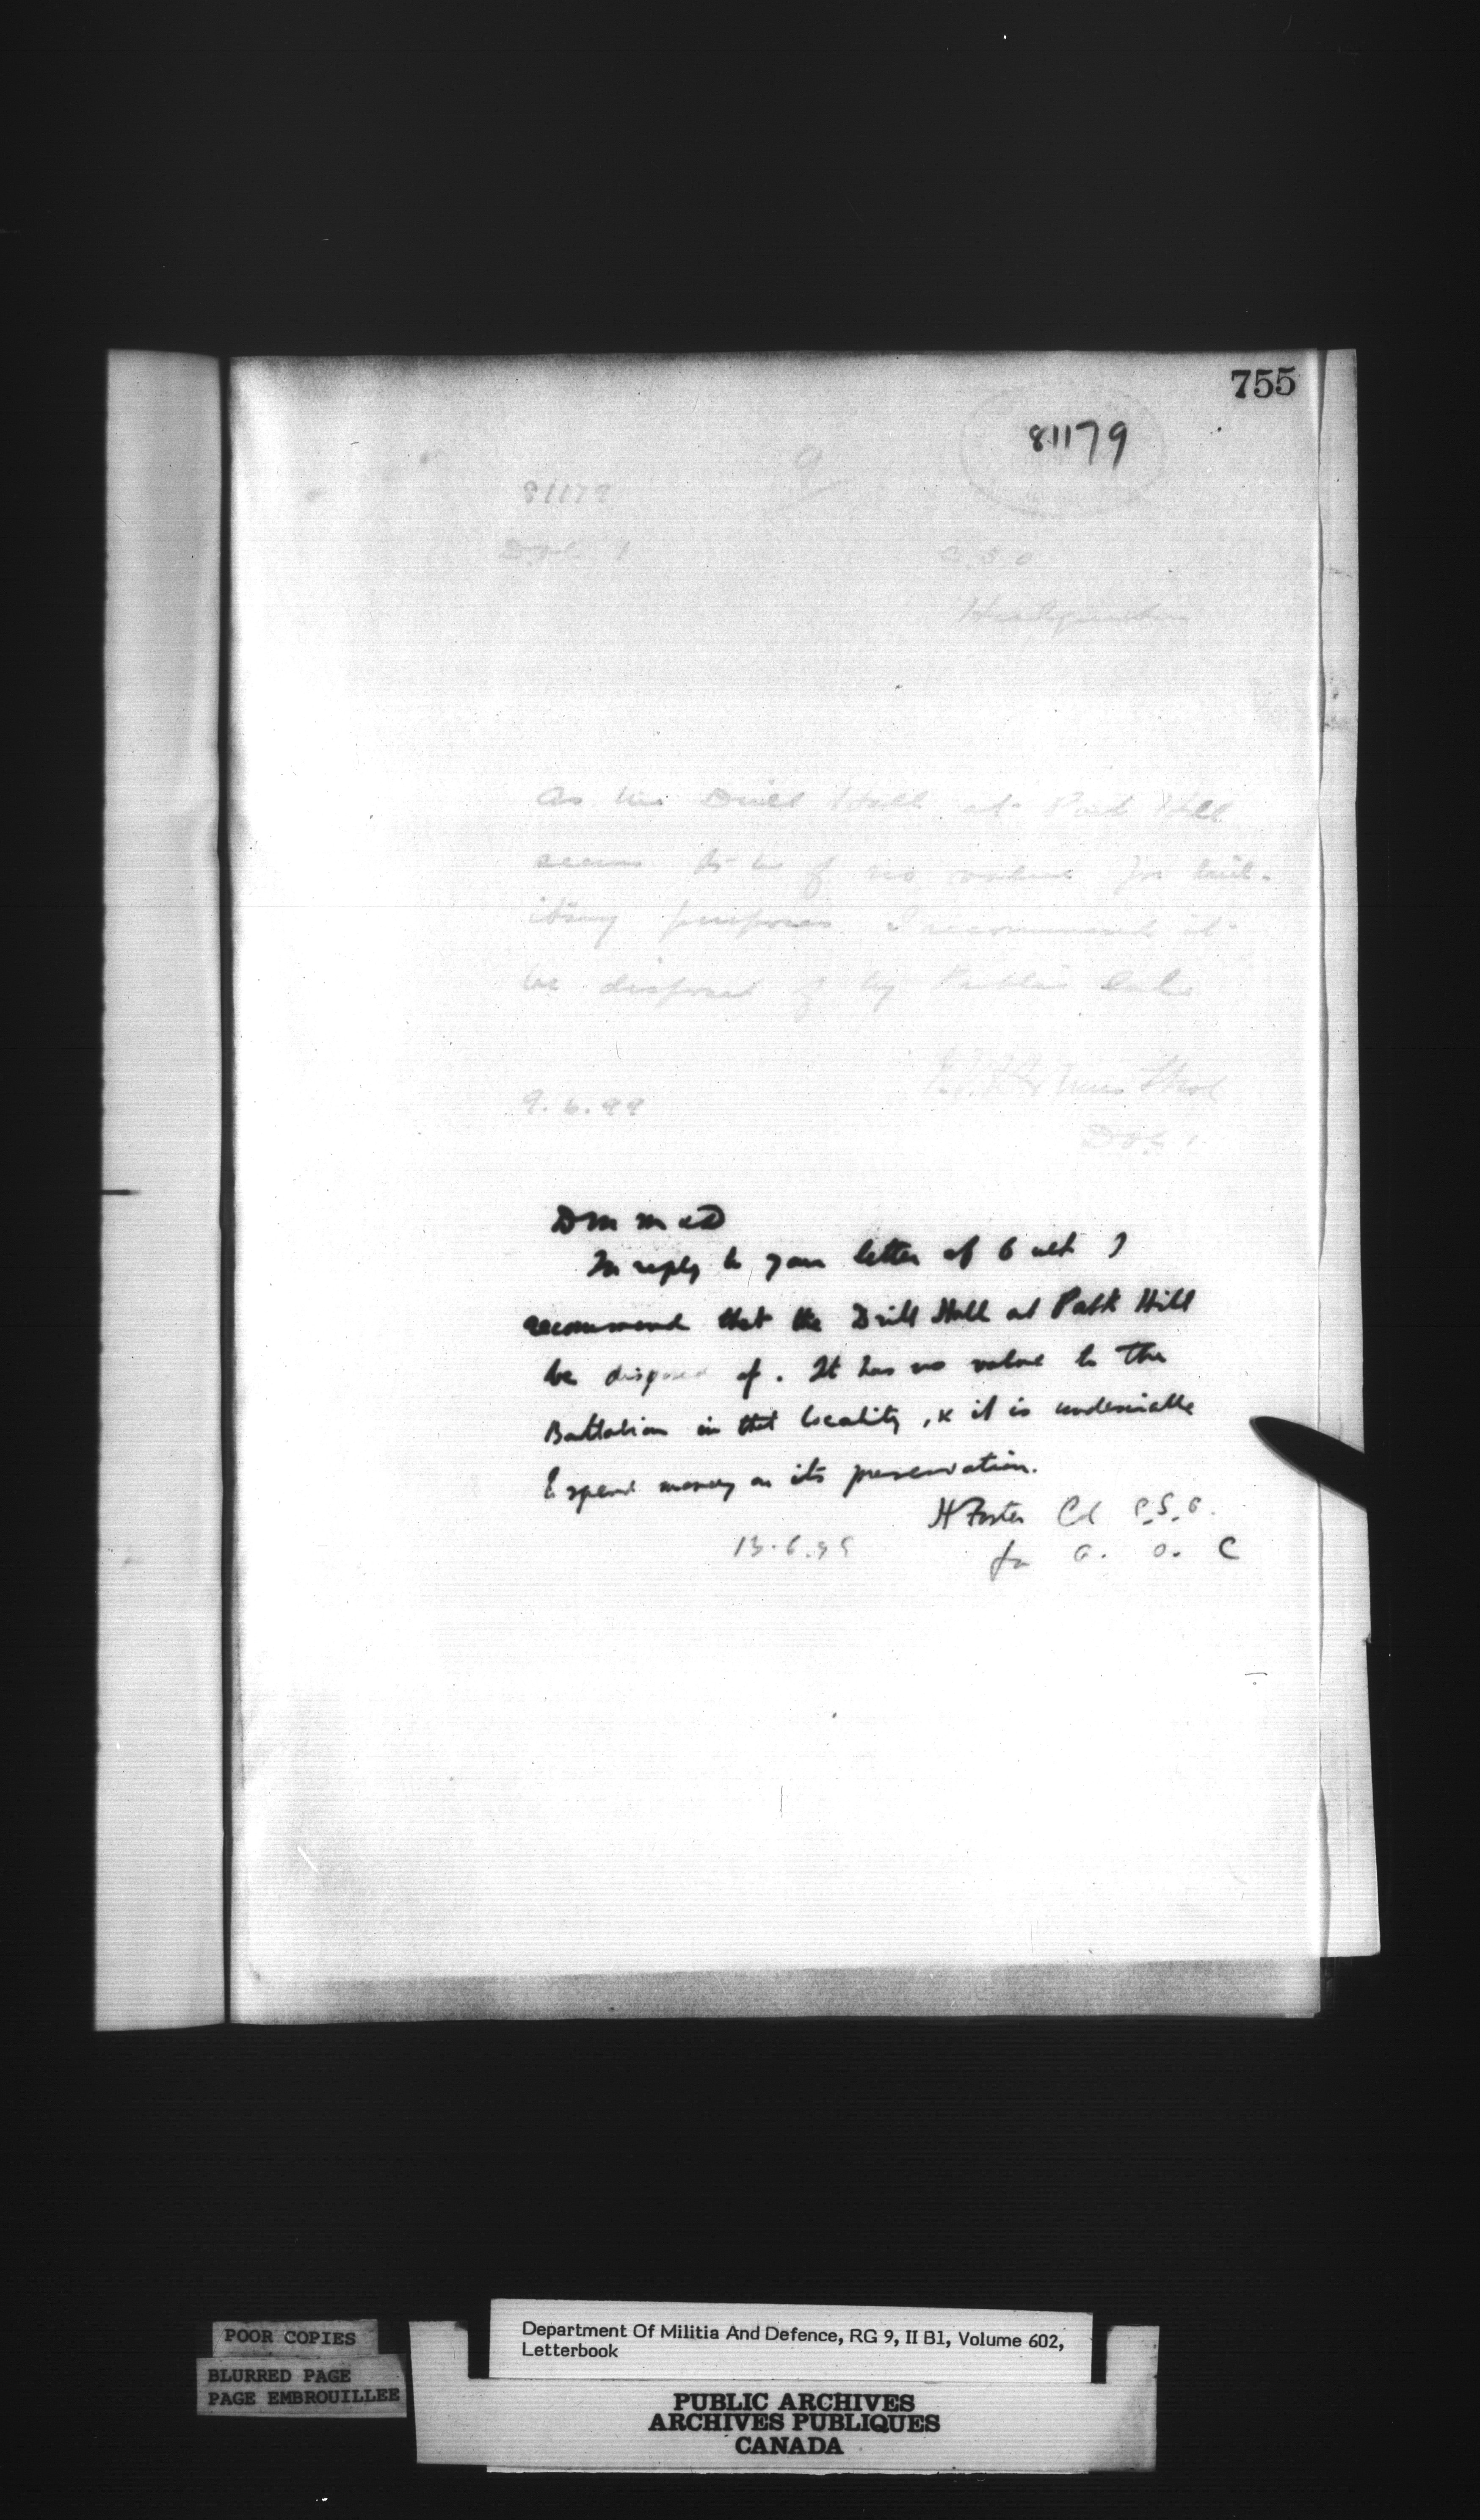 755
81179
9
81179
DOC 1
C.S.O
Headquarters
As the Drill Hall at Park Hill
seems to be of no value for mil-
itary purposes I recommend it
be disposed of by Public Sale
9.6.99
DOC 1
D M M & D
In reply to your letter of 6 ult I
recommend that the Drill Hall at Park Hill
be disposed of. It has no value to the
Battalion in that locality, & it is undesirable
to spend money on its preservation.
H Foster Col C.S.O.
13.6.99
for G. O. C
POOR COPIES
BLURRED PAGE
PAGE EMBROUILLEE
Department Of Militia And Defence, RG 9, II B1, Volume 602,
Letterbook
PUBLIC ARCHIVES
ARCHIVES PUBLIQUES
CANADA